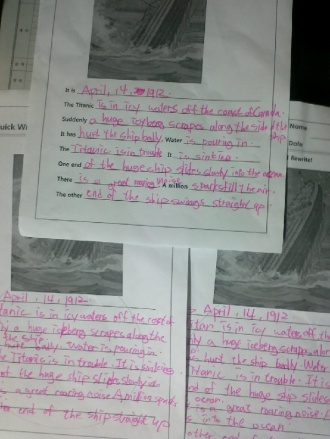 It is April, 14, 1912.
The Titanic is in icy waters off the coast of Canada.
Suddenly a huge iceberg scrapes along the side of the ship.
It has hurt the ship badly. Water is pouring in.
The Titanic is in trouble. It is sinking.
One end of the huge ship slides slowly into the ocean.
There is a great roaring noise. A million sparks fill the air.
The other end of the ship swings straight up.
uick Wr
April, 14, 1912.
tanic is in icy waters off the coast of
ly a huge iceberg scrapes along the
the ship.
badly. Water is pouring in.
he Titanic is in trouble. It is sinking
of the huge ship
a great roaring noise A million spark
end of the ship straight up
Name
Date
Rewrite!
April, 14, 1912.
is in icy waters off the
ly a huge iceberg scrapes
hurt the ship badly Water
itanic is in trouble. It i
nd of the huge ship slides
ocean.
is a great roaring noise.
into the ocean